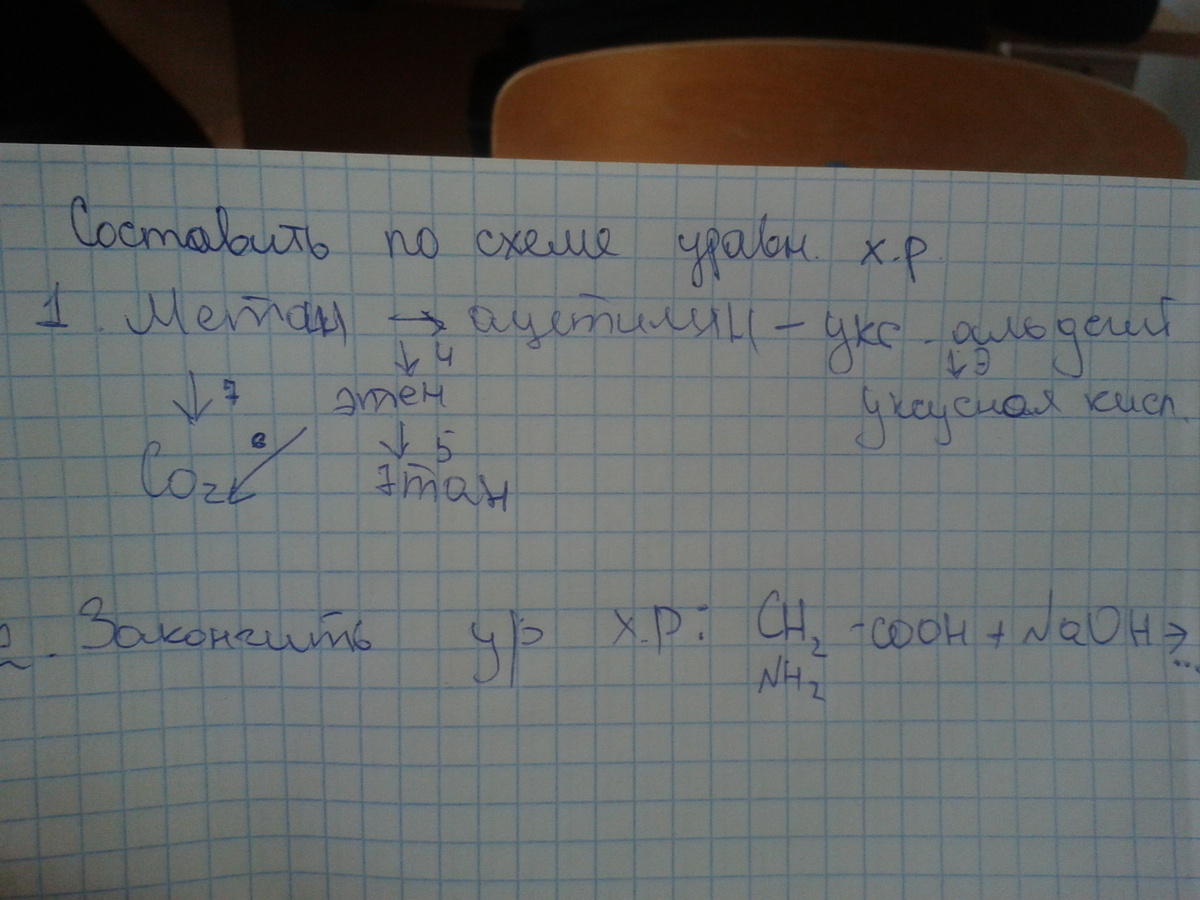 Составить по схеме уравн. х.р.
1. Метан → ацетилен – укс. альдегид
↓ 4 ↓ 3
↓ 7 этен уксусная кисл.
6 ↓ 5
CO2 этан
2. Закончить ур х.р: CH2 -COOH + NaOH → ...
NH2